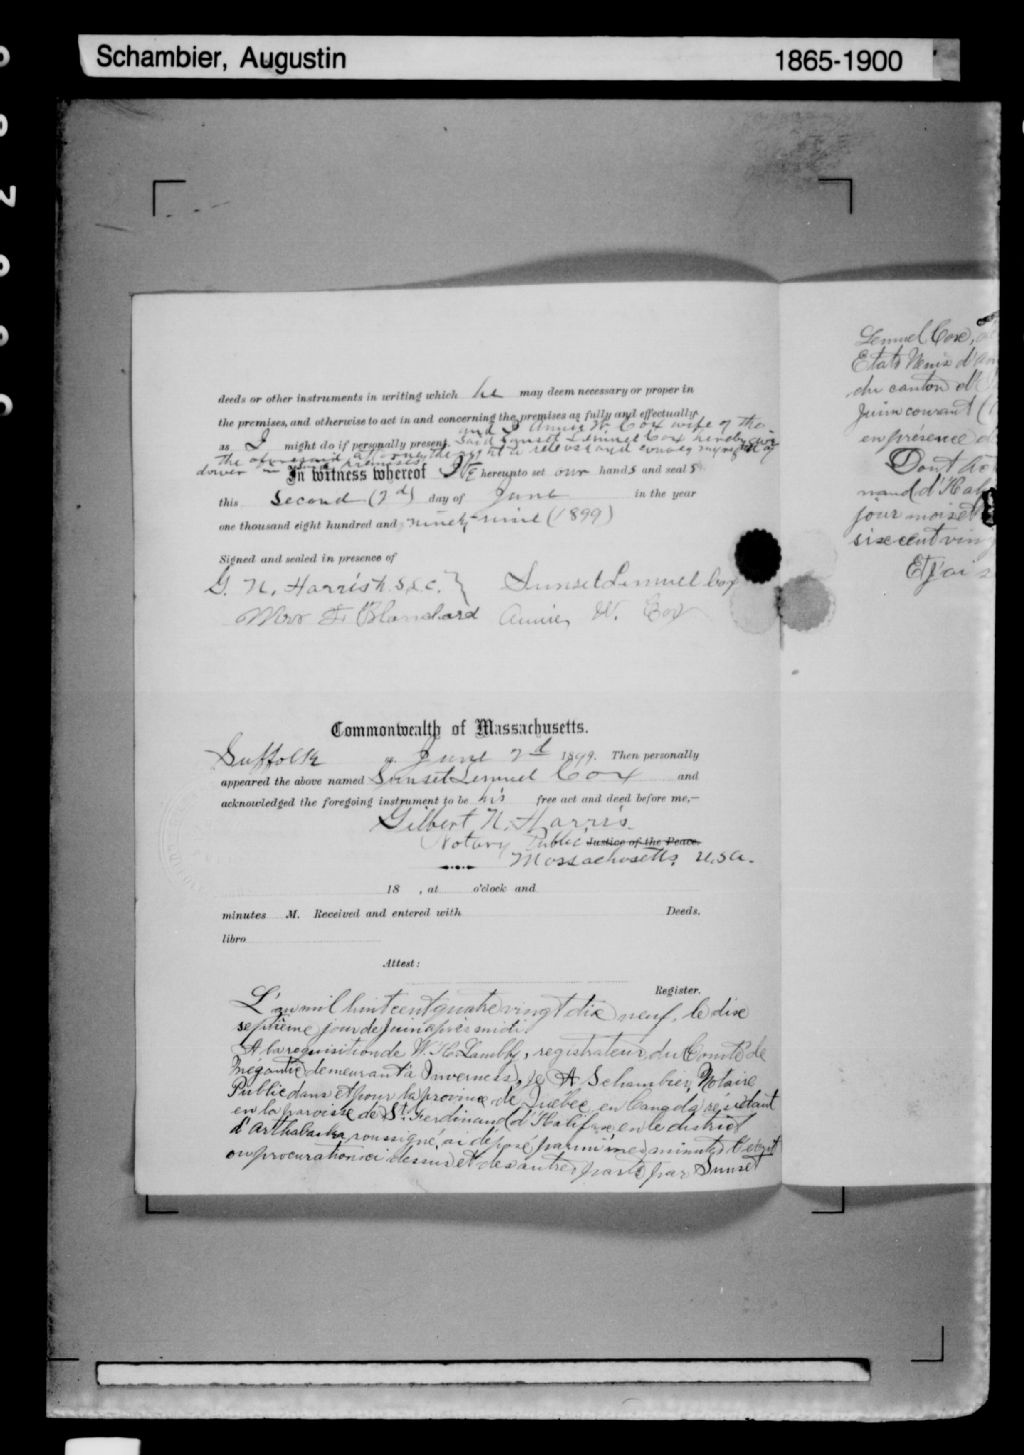 Schambier, Augustin 1865-1900
deeds or other instruments in writing which he may deem necessary or proper in
the premises, and otherwise to act in and concerning the premises as fully and effectually
and I Annie W. Cox wife of the
as I might do if personally present. Said Sunset Lemuel Cox hereby give
the aforesaid attorney the right to release and convey my right of
dower in said premises
In witness whereof We hereunto set our hands and seals
this second (2d) day of June in the year
one thousand eight hundred and ninety-nine (1899)
Signed and sealed in presence of
G. N. Harris to S.L.C. } Sunset Lemuel Cox
Mrs F. Blanchard Annie W. Cox
Commonwealth of Massachusetts.
Suffolk ss. June 2d 1899. Then personally
appeared the above named Sunset Lemuel Cox and
acknowledged the foregoing instrument to be his free act and deed before me,—
Gilbert N. Harris
Notary Public Justice of the Peace.
Massachusetts U.S.A.
18 , at o'clock and
minutes M. Received and entered with Deeds,
libro
Attest:
Register.
L'an mil huit cent quatre vingt dix neuf, le dix
septième jour de Juin après midi
A la requisition de W. H. Lambly, registrateur du Comté de
Mégantic demeurant à Inverness, je A Schambier, Notaire
Public dans et pour la province de Québec en Canada résidant
en la paroisse de St. Ferdinand d'Halifax en le district
d'Arthabaska soussigné, ai déposé parmi mes minutes
ou procuration ci dessus et des autres parts par Sunset
Lemuel Cox,
Etats Unis d'
du canton d'
Juin courant (
en présence d
Dont
nand d'Hal
jour mois et
six cent ving
Et j'ai